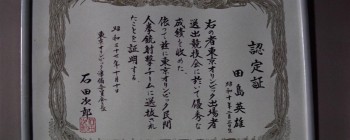 認定証
田島英雄
右の者東京オリンピック出場者
選出競技会に於いて優秀な
成績を収めた
依って茲に東京オリンピック民間
人拳銃射撃チームに選抜され
たことを証明する
昭和三十七年十月十日
東京オリンピック準備委員会会長
石田次郎